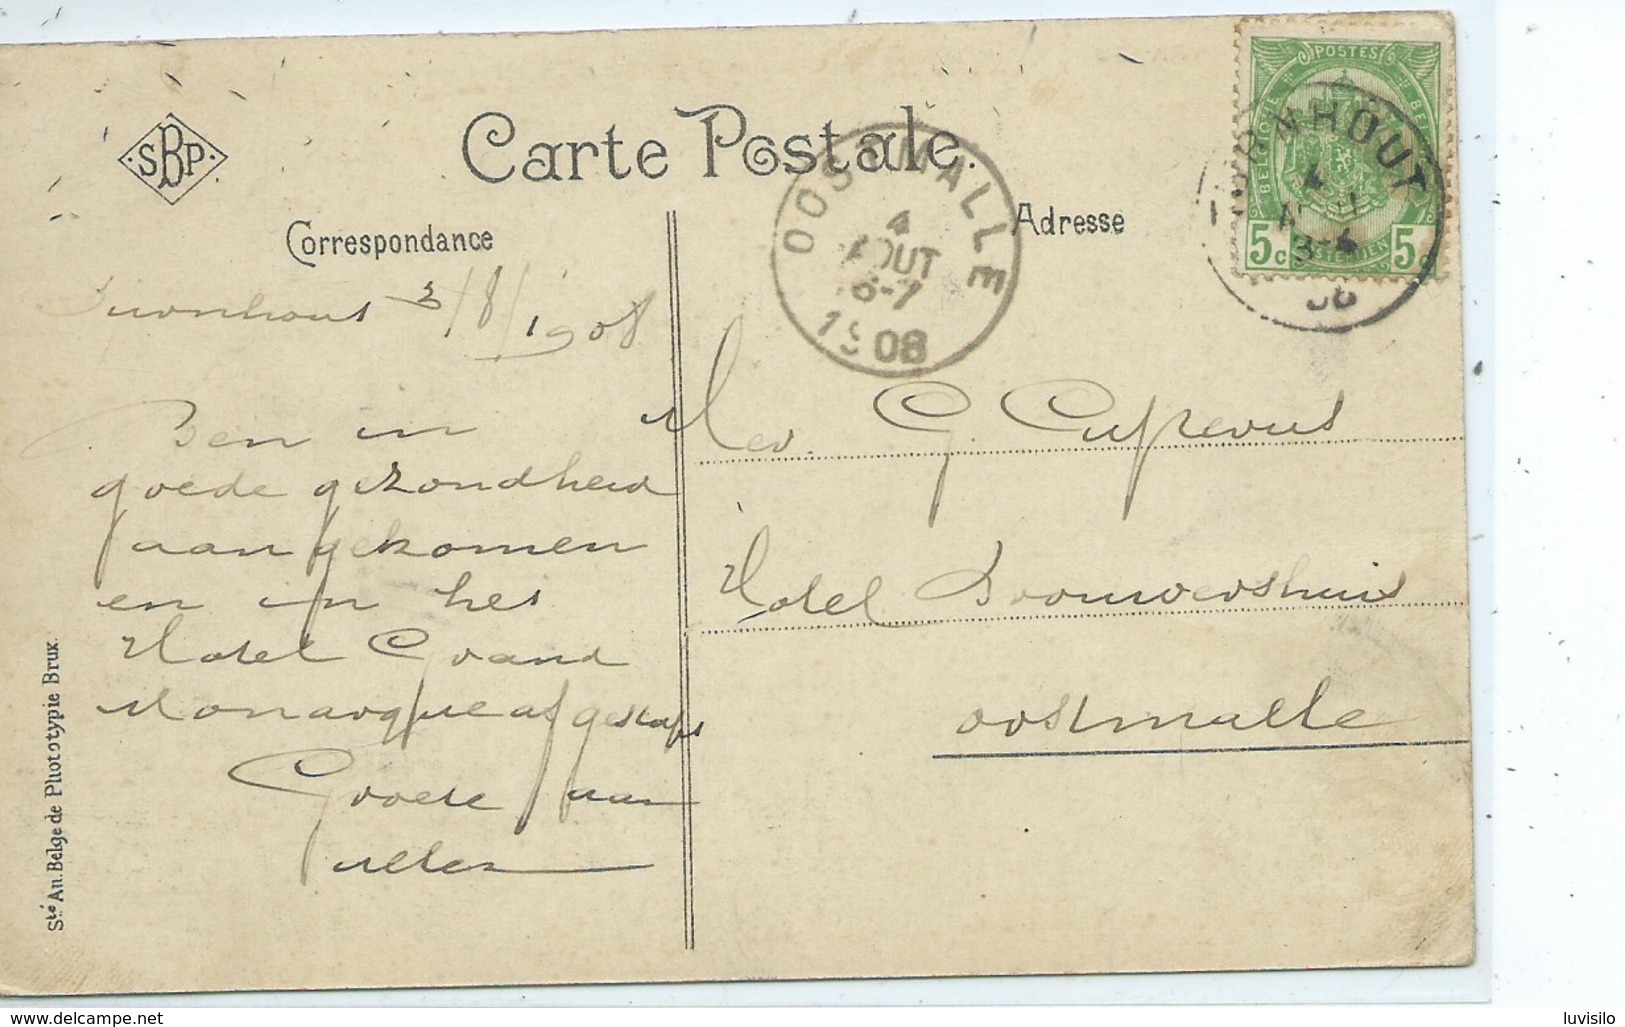 SBP
Carte Postale.
Correspondance
Adresse
POSTES
BELGIQUE
5c 5c
TURNHOUT
4
3-4
08
OOSTMALLE
4
AOUT
6-7
1908
Turnhout 3/8/1908
Ben in
goede gezondheid
aangekomen
en in het
Hotel Grand
Monarque afgestapt
Groete aan
allen
Mev. G.
Hotel Brouwershuis
Oostmalle
Sté An. Belge de Phototypie Brux.
www.delcampe.net
luvisilo